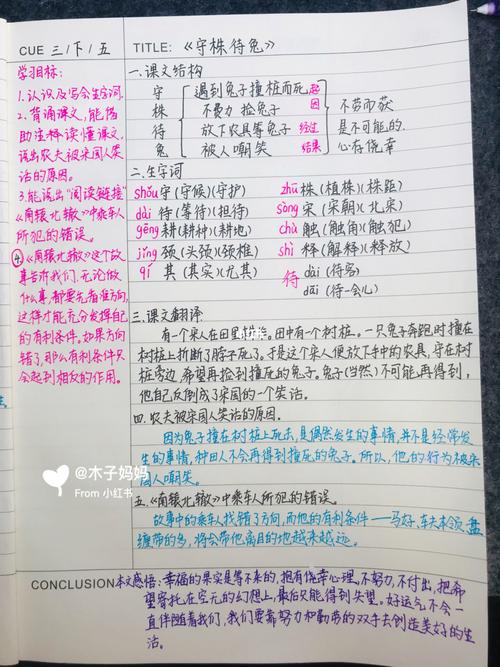 CUE 三/下/五
TITLE:《守株待兔》
学习目标:
1.认识及写会生字词.
2.背诵课文,能借
助注释读懂课文,
说出农夫被宋国人笑
话的原因.
3.能说出"阅读链接"
《南辕北辙》中乘车人
所犯的错误。
4.《南辕北辙》这个故
事告诉我们,无论做
什么事,都要先看准方向,
这样才能充分发挥自己
的有利条件。如果方向
错了,那么有利条件只
会起到相反的作用。
一.课文结构
守 遇到兔子撞桩而死 起
株 不费力捡兔子 因 不劳而获
待 放下农具等兔子 经过 是不可能的.
兔 被人嘲笑 结果 心存侥幸
二.生字词
shǒu守(守候)(守护) zhū株(植株)(株距)
dài待(等待)(担待) sòng宋(宋朝)(北宋)
gēng耕(耕种)(耕地) chù触(触角)(触犯)
jǐng颈(头颈)(颈椎) shì释(解释)(释放)
qí其(其实)(尤其) 待 dài(待客)
dāi(待一会儿)
三.课文翻译
有一个宋人在田里耕.田中有一个树桩。一只兔子奔跑时撞在
树桩上折断了脖子死了。于是这个宋人便放下手中的农具,守在树
桩旁边,希望再捡到撞死的兔子。兔子(当然)不可能再得到,
他自己反倒成了宋国的一个笑话。
四.农夫被宋国人笑话的原因.
因为兔子撞在树桩上死去,是偶然发生的事情,并不是经常发
生的事情,种田人不会再得到撞死的兔子。所以,他的行为被宋
国人嘲笑。
五.《南辕北辙》中乘车人所犯的错误。
故事中的乘车人找错了方向,而他的有利条件——马好,车夫本领,盘
缠带的多,将会带他离目的地越来越远。
@木子妈妈
From 小红书
CONCLUSION 本文感悟:幸福的果实是等不来的,抱有侥幸心理,不努力,不付出,把希
望寄托在空无的幻想上,最后只能得到失望。好运气不会一
直伴随着我们,我们要靠努力和勤劳的双手去创造美好的生
活。